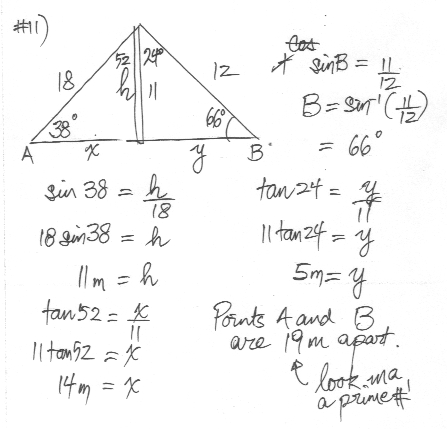 #11)
52 24°
18 h 11 12
38° 66°
A x y B
* sinB = 11/12
B = sin⁻¹(11/12)
= 66°
sin 38 = h/18
18 sin38 = h
11m = h
tan52 = x/11
11 tan52 = x
14m = x
tan24 = y/11
11 tan24 = y
5m = y
Points A and B
are 19m apart.
look ma
a prime#!